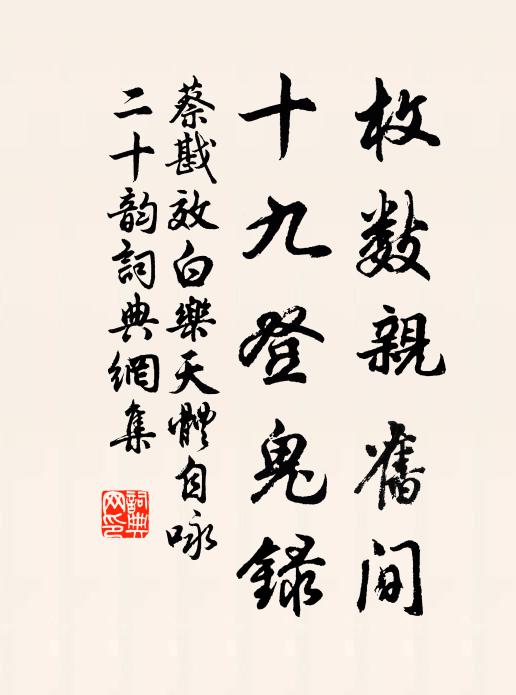 枚数親舊间
十九登鬼錄
蔡戡效白樂天體自咏
二十韵詞典網集
詞典
网印